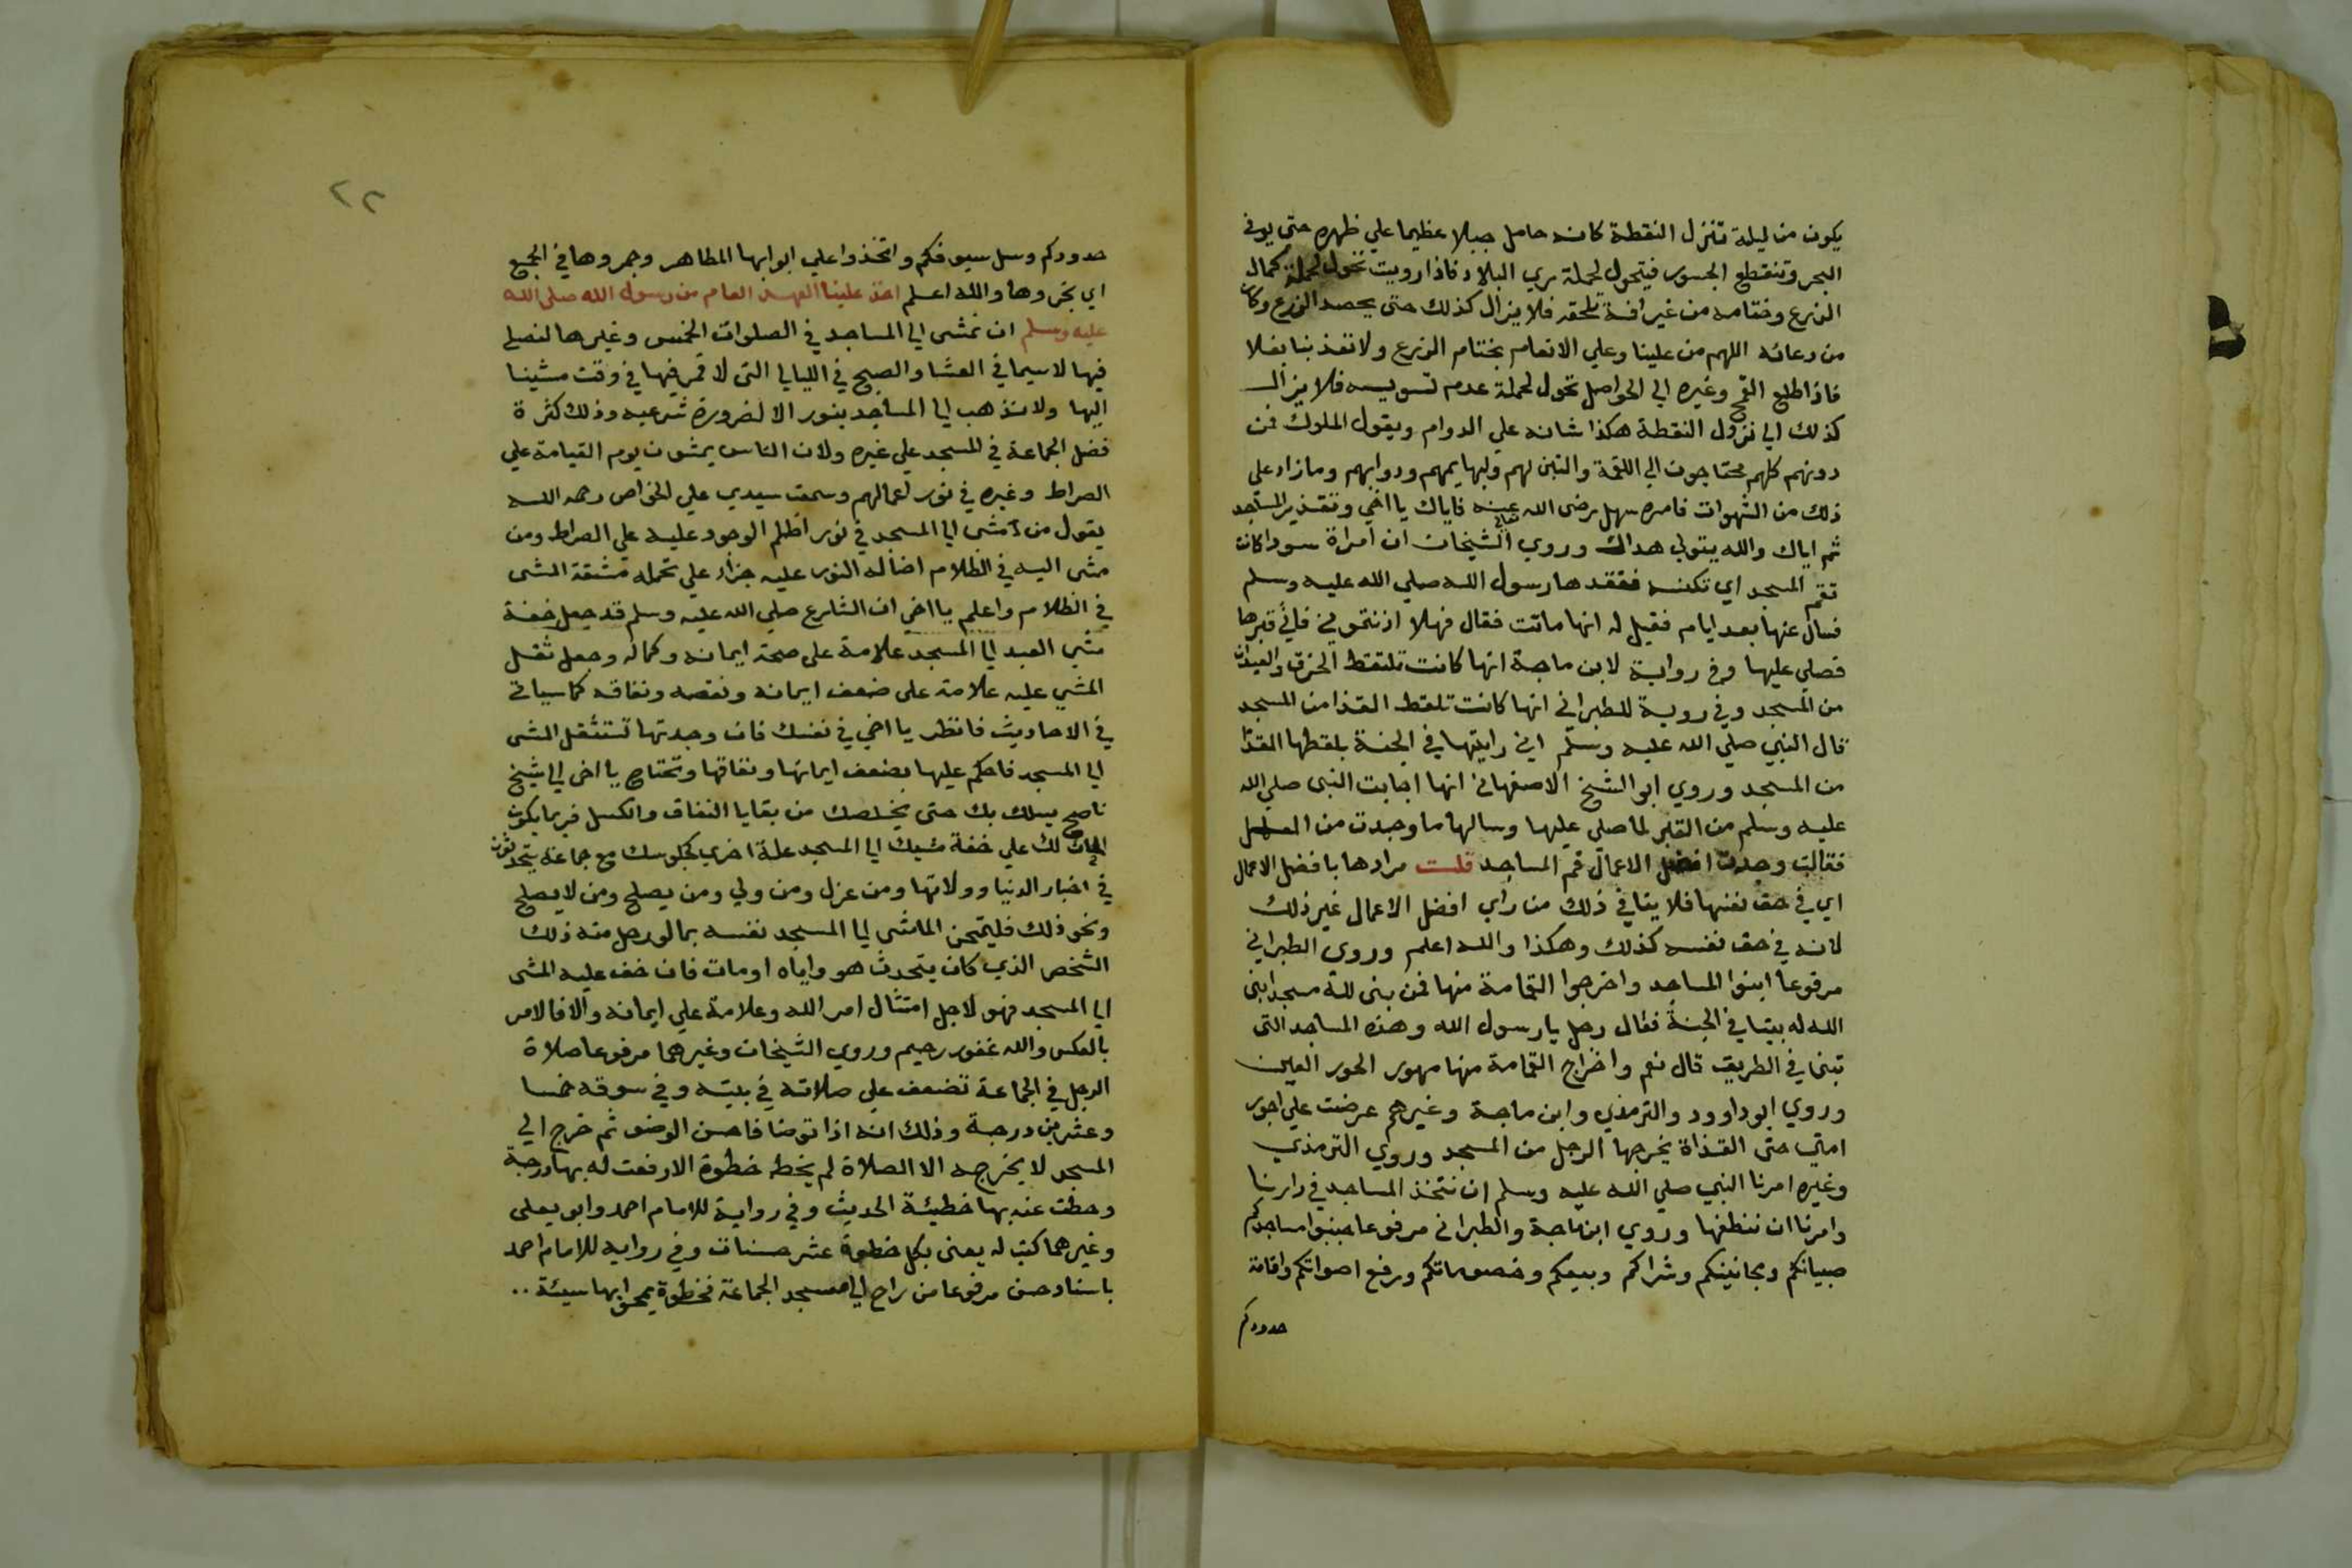 يكون من ليلة تنزل النقطة كانه حامل جبلا عظيما علي ظهره حتى يوفي
البحر وتنقطع الجسور فيتحول لحملة ري البلاد فاذا رويت تحول لحملة كمال
الزرع وختامه من غير افة تلحقه فلا يزال كذلك حتى يحصد الزرع وكان
من دعائه اللهم من علينا وعلي الانعام بختام الزرع ولا تعذبنا بغلا
فاذا طلع القمح وغيره الي الحواصل تحول لحملة عدم تسويسه فلا يزال
كذلك الي نزول النقطة هكذا شانه علي الدوام ويقول الملوك فمن
دونهم كلهم محتاجون الي اللقمة والتبن لهم ولبهايمهم ودوابهم وما زاد على
ذلك من الشهوات فامره سهل رضى الله عنه فاياك يا اخي وتقذير المساجد
ثم اياك والله يتولى هداك وروي الشيخان ان امراة سودا كانت
تقم المسجد اي تكنسه ففقدها رسول الله صلي الله عليه وسلم
فسال عنها بعد ايام فقيل له انها ماتت فقال فهلا اذنتموني فاتى قبرها
فصلي عليها وفي رواية لابن ماجة انها كانت تلتقط الخرق والعيدان
من المسجد وفي روية للطبراني انها كانت تلقط القذا من المسجد
قال النبي صلى الله عليه وسلم اني رايتها في الجنة بلقطها القذا
من المسجد وروي ابو الشيخ الاصفهاني انها اجابت النبى صلي الله
عليه وسلم من القبر لما صلي عليها وسالها ما وجدت من العمل
فقالت وجدت افضل الاعمال قم المساجد قلت مرادها بافضل الاعمال
اي في حق نفسها فلا ينافي ذلك من راي افضل الاعمال غير ذلك
لانه في حق نفسه كذلك وهكذا والله اعلم وروى الطبراني
مرفوعا ابنوا المساجد واخرجوا القمامة منها فمن بنى لله مسجدا بنى
الله له بيتا في الجنة فقال رجل يا رسول الله وهذه المساجد التى
تبنى في الطريق قال نعم واخراج القمامة منها مهور الحور العين
وروي ابو داوود والترمذي وابن ماجة وغيرهم عرضت علي اجور
امتي حتى القذاة يخرجها الرجل من المسجد وروي الترمذي
وغيره امرنا النبي صلي الله عليه وسلم ان نتخذ المساجد في دارنا
وامرنا ان ننظفها وروي ابن ماجة والطبرانى مرفوعا جنبوا مساجدكم
صبيانكم ومجانينكم وشراكم وبيعكم وخصوماتكم ورفع اصواتكم واقامة
حدودكم
٢٢
حدودكم وسل سيوفكم واتخذوا علي ابوابها المطاهر وجمروها في الجمع
اي بخروها والله اعلم اخذ علينا العهد العام من رسول الله صلى الله
عليه وسلم ان نمشى الي المساجد في الصلوات الخمس وغيرها لنصلي
فيها لاسيما في العشا والصبح في الليالي التى لا قمر فيها في وقت مشينا
اليها ولا نذهب الي المساجد بنور الا لضرورة شرعيه وذلك كثرة
فضل الجماعة في المسجد علي غيره ولان الناس يمشون يوم القيامة علي
الصراط وغيره في نور اعمالهم وسمعت سيدي علي الخواص رحمه الله
يقول من مشى الي المسجد في نور اظلم الوجود عليه علي الصراط ومن
مشى اليه في الظلام اضا له النور عليه جزاء علي تحمله مشقة المشى
في الظلام واعلم يا اخي ان الشارع صلي الله عليه وسلم قد جعل خفة
مشي العبد الي المسجد علامة على صحة ايمانه وكماله وجعل ثقل
المشي عليه علامة على ضعف ايمانه ونقصه ونفاقه كما سياتي
في الاحاديث فانظر يا اخي في نفسك فان وجدتها تستثقل المشى
الي المسجد فاحكم عليها بضعف ايمانها ونفاقها وتحتاج يا اخى الي شيخ
ناصح يسلك بك حتى يخلصك من بقايا النفاق والكسل فربما يكون
الباعث لك علي خفة مشيك الي المسجد علة اخري كجلوسك مع جماعة يتحدثون
في اخبار الدنيا وولاتها ومن عزل ومن ولي ومن يصلح ومن لا يصلح
ونحو ذلك فليمتحن الماشى الي المسجد نفسه بما لو رحل منه ذلك
الشخص الذي كان يتحدث هو واياه او مات فان خف عليه المشى
الي المسجد فهو لاجل امتثال امر الله وعلامة علي ايمانه والا فالامر
بالعكس والله غفور رحيم وروي الشيخان وغيرهما مرفوعا صلاة
الرجل في الجماعة تضعف علي صلاته في بيته وفي سوقه خمسا
وعشرين درجة وذلك انه اذا توضا فاحسن الوضو ثم خرج الي
المسجد لا يخرجه الا الصلاة لم يخط خطوة الا رفعت له بها درجة
وحطت عنه بها خطيئة الحديث وفي رواية للامام احمد وابو يعلى
وغيرهما كتب له يعنى بكل خطوة عشر حسنات وفي رواية للامام احمد
باسناد حسن مرفوعا من راح الي مسجد الجماعة فخطوة يمحو بها سيئة ..